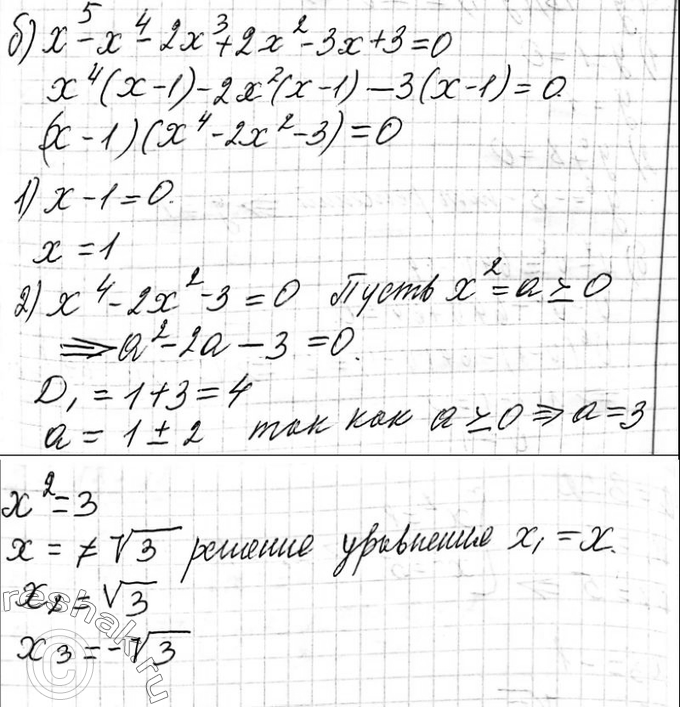 б) x⁵ - x⁴ - 2x³ + 2x² - 3x + 3 = 0
x⁴(x - 1) - 2x²(x - 1) - 3(x - 1) = 0.
(x - 1)(x⁴ - 2x² - 3) = 0
1) x - 1 = 0.
x = 1
2) x⁴ - 2x² - 3 = 0 Пусть x² = a ≥ 0
⇒ a² - 2a - 3 = 0.
D₁ = 1 + 3 = 4
a = 1 ± 2 так как a ≥ 0 ⇒ a = 3
x² = 3
x = ≠ √3 решение уравнение x₁ = x.
x₂ = √3
x₃ = -√3
reshak.ru